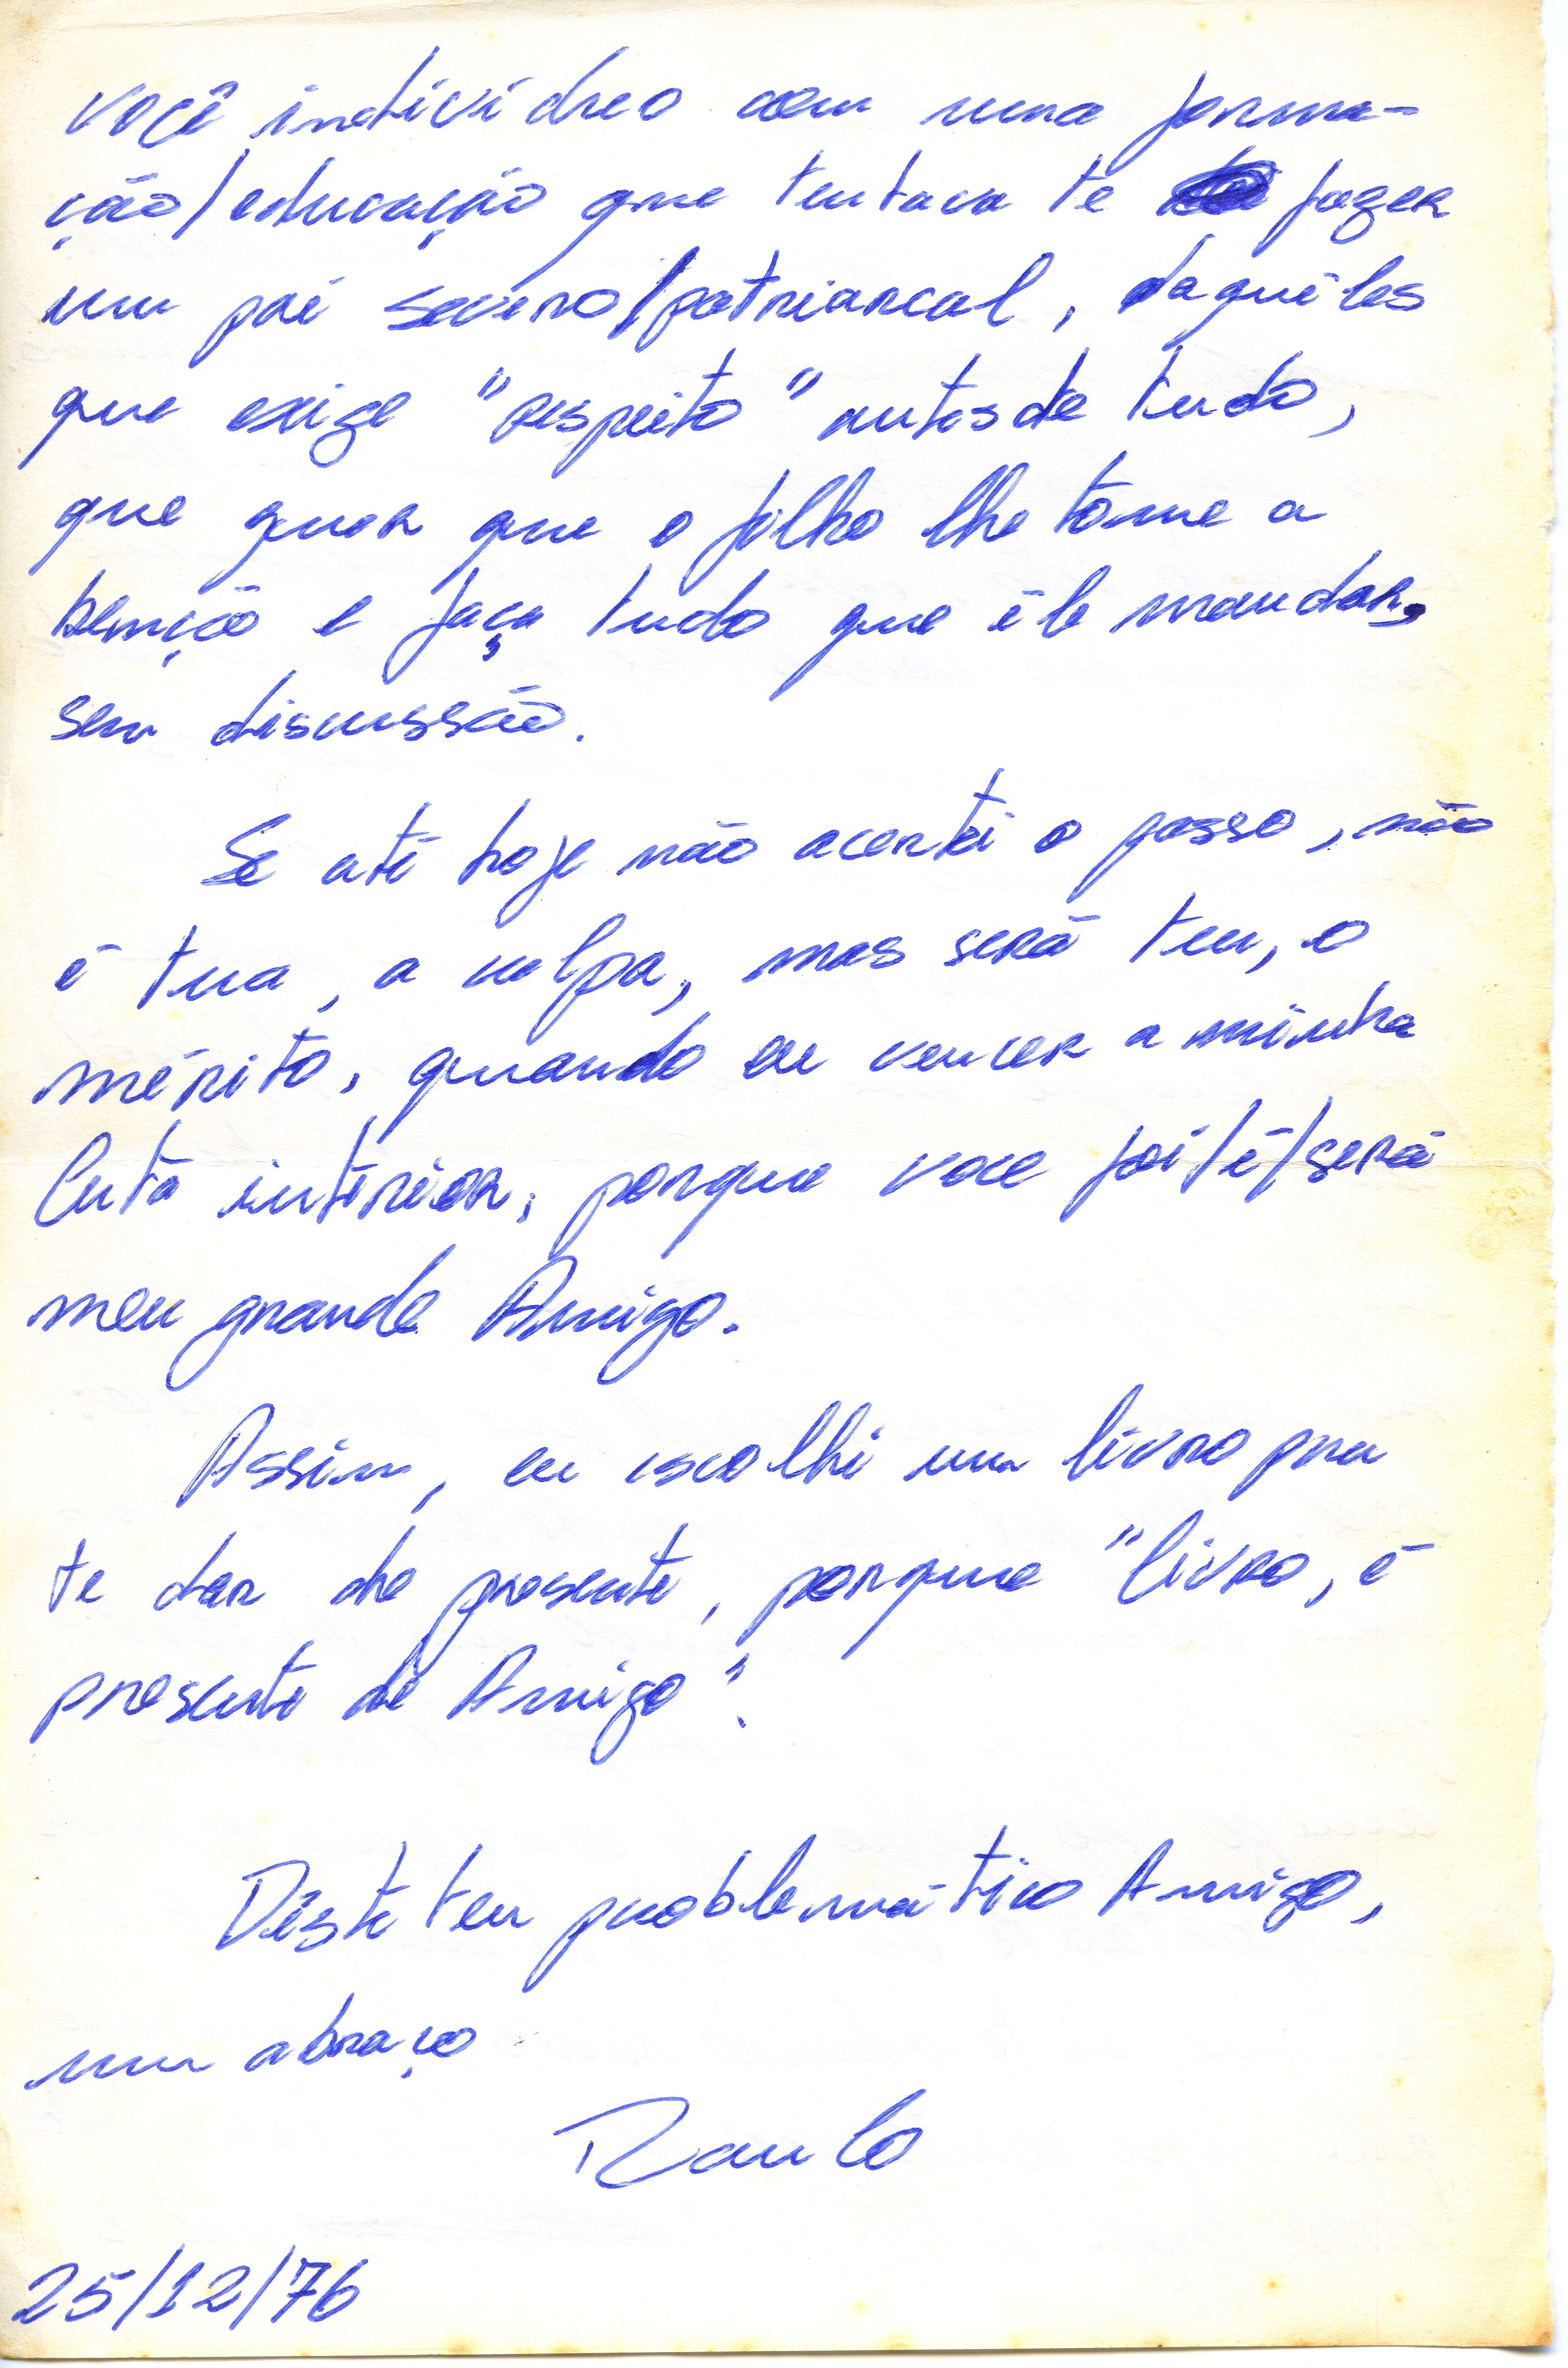 você indivíduo com uma forma-
ção/educação que tentava te fazer
um pai severo/patriarcal, daquêles
que exige "respeito" antes de tudo,
que quer que o filho lhe tome a
bemção e faça tudo que êle mandar,
sem discussão.
Se até hoje não acertei o passo, não
é tua, a culpa, mas será teu, o
mérito, quando eu vencer a minha
luta interior, porque voce foi/é/será
meu grande Amigo.
Assim, eu escolhi um livro pra
te dar de presente, porque "livro, é
presente de Amigo".
Dêste teu problemático Amigo,
um abraço
Paulo
25/12/76